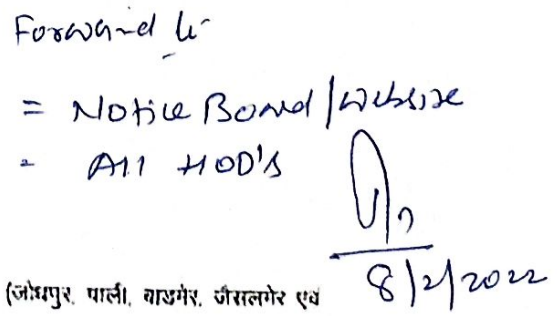 Forward to
= Notice Board/website
- All HOD's
8/2/2022
(जोधपुर, पाली, बाडमेर, जैसलमेर एवं